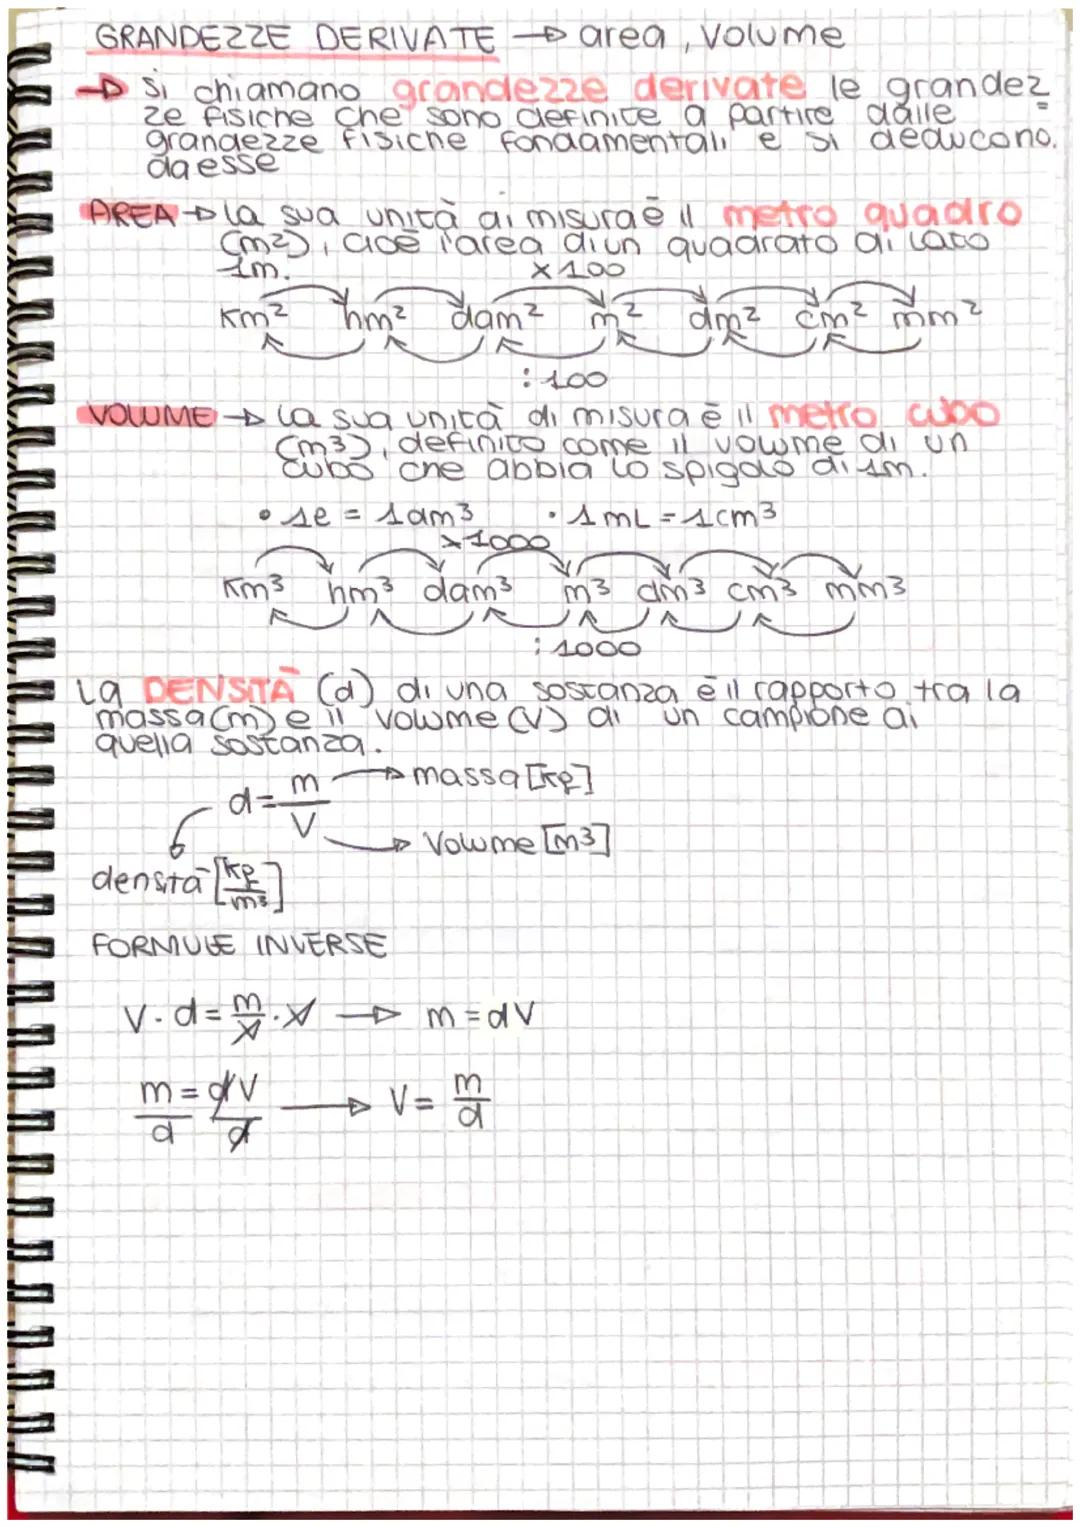 GRANDEZZE DERIVATE → area, volume
→ Si chiamano grandezze derivate le grandez
ze fisiche che sono definite a partire dalle
grandezze fisiche fondamentali e si deducono
da esse
AREA → La sua unità di misura è il metro quadro
(m²), cioè l'area di un quadrato di lato
1m.
x100
Km² hm² dam² m² dm² cm² mm²
: 100
VOLUME → La sua unità di misura è il metro cubo
(m³), definito come il volume di un
cubo che abbia lo spigolo di 1m.
• 1l = 1dm³ • 1mL = 1cm³
x1000
Km³ hm³ dam³ m³ dm³ cm³ mm³
: 1000
La DENSITÀ (d) di una sostanza è il rapporto tra la
massa (m) e il volume (V) di un campione di
quella sostanza.
d = m/V → massa [kg]
→ Volume [m³]
densità [kg/m³]
FORMULE INVERSE
V · d = m/V · V → m = dV
m/d = dV/d → V = m/d